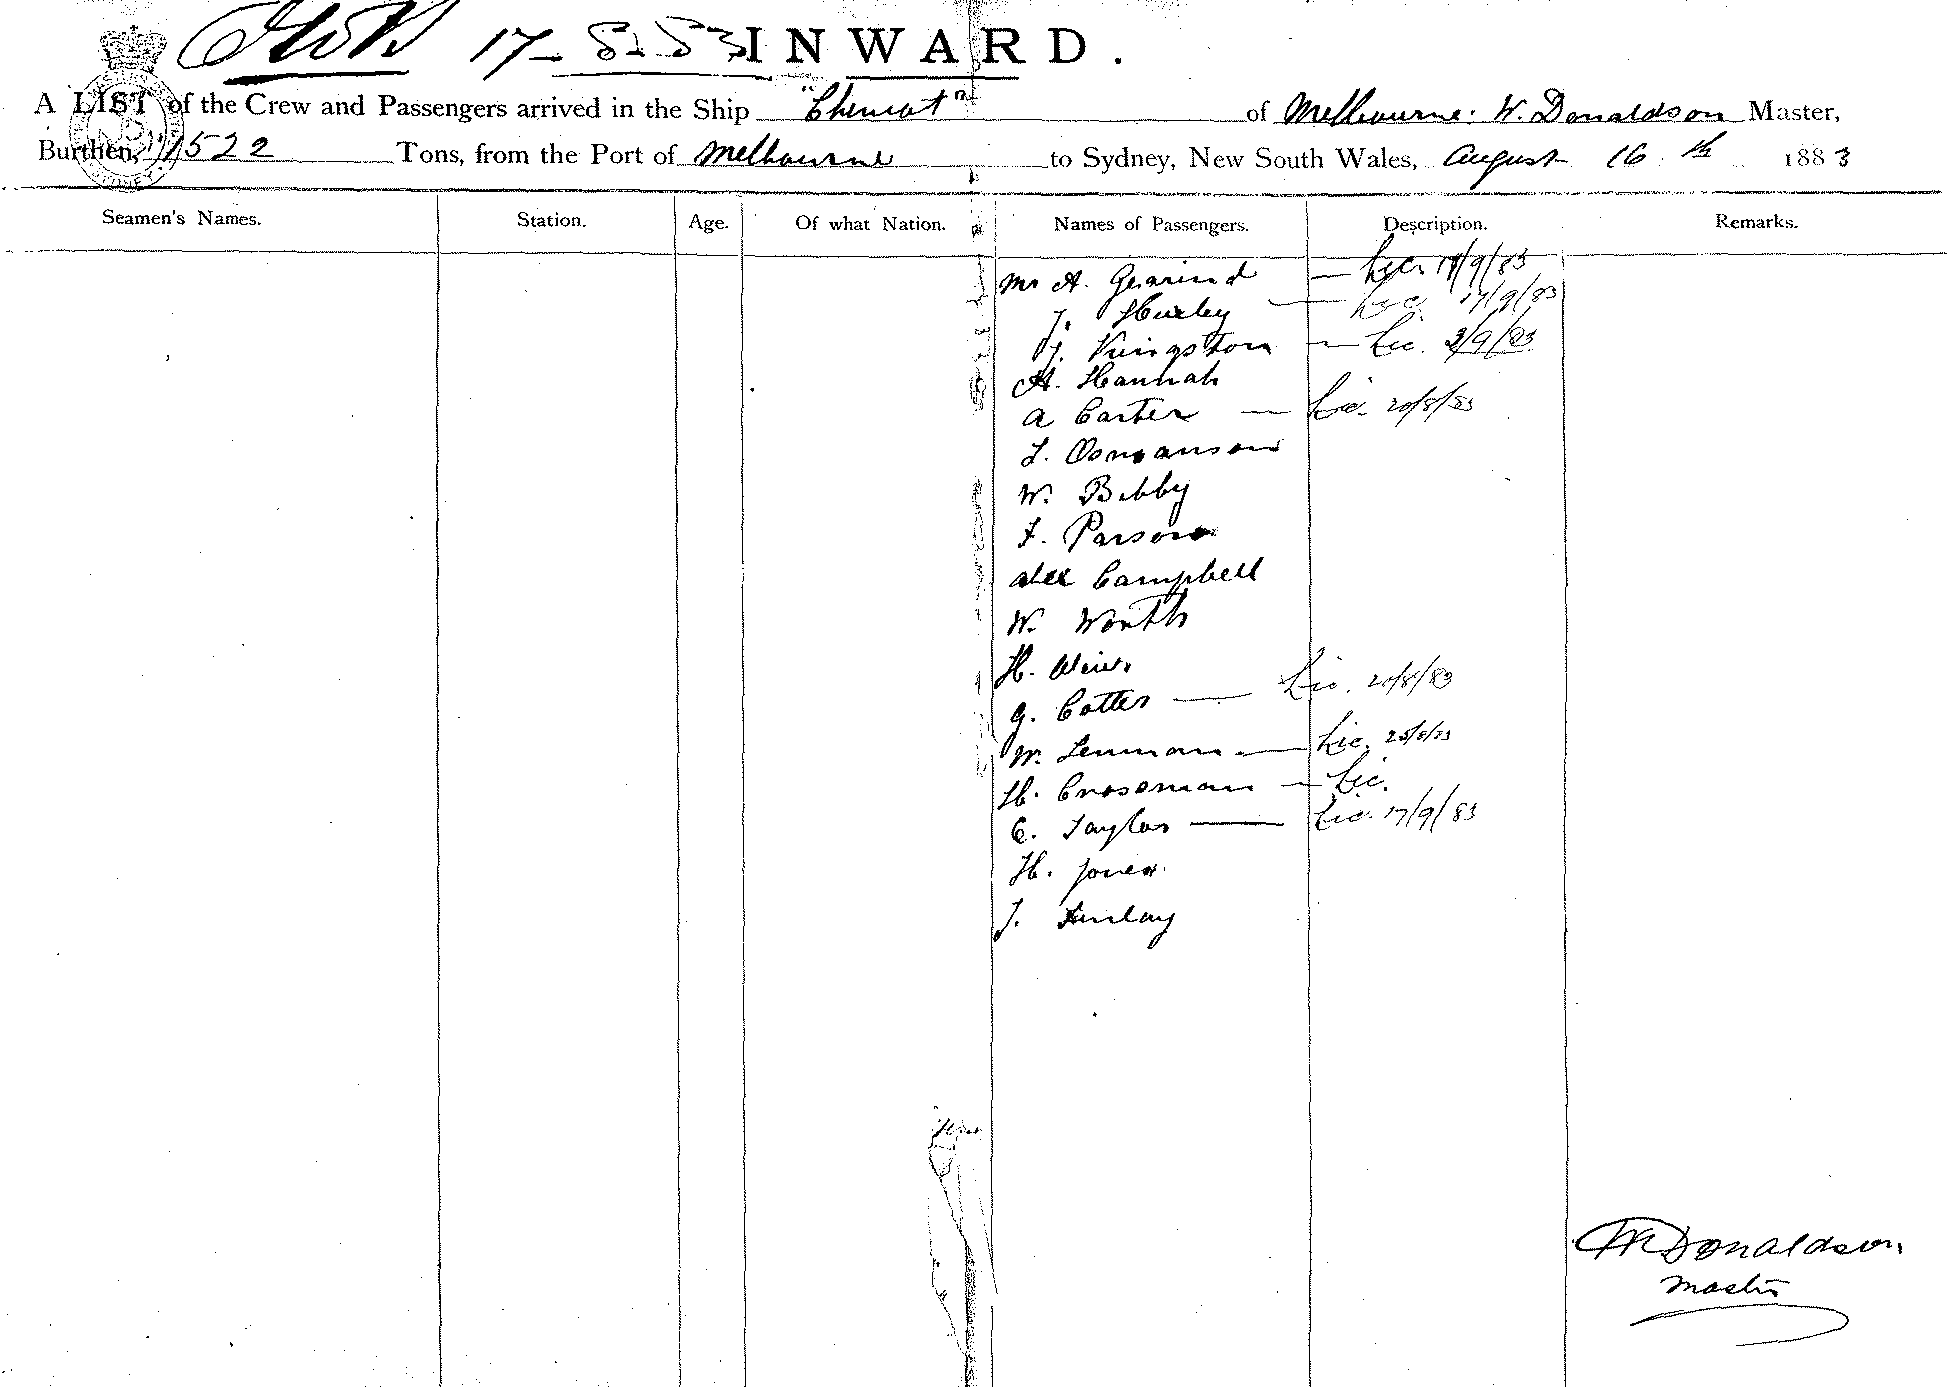 17-8-83 INWARD.
A LIST of the Crew and Passengers arrived in the Ship "Cheviot" of Melbourne. W. Donaldson Master,
Burthen, 1522 Tons, from the Port of Melbourne to Sydney, New South Wales, August 16th 1883
Seamen's Names. Station. Age. Of what Nation. Names of Passengers. Description. Remarks.
Mr A.
J. Huxley
J. Kingston — Lic.
A. Hannah
A Carter — Lic. 20/8/83
W. Bibby
F. Parsons
Alex Campbell
W. Worth
H. Weir
G. Cotter — Lic. 20/8/83
W. Lennon — Lic.
H. Crossman — Lic.
C. Taylor — Lic. 17/9/83
H. Jones
J. Finlay
W Donaldson
Master